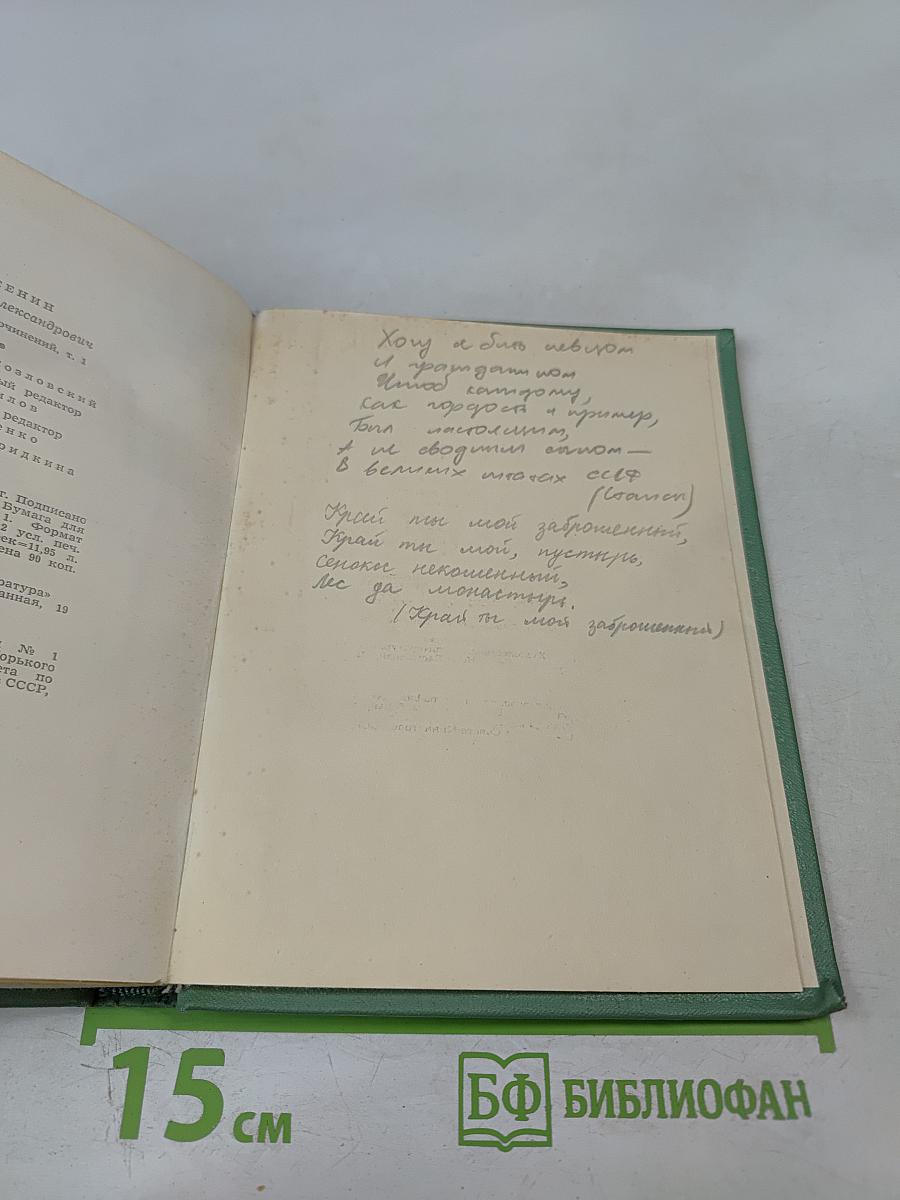 СЕНИН
лександрович
очинений, т. 1
е
озловский
ый редактор
илов
редактор
енко
ридкина
г. Подписано
Бумага для
1. Формат
2 усл. печ.
ек=11,95 л.
ена 90 коп.
ратура»
анная, 19
№ 1
орького
ета по
СССР,
Хочу я быть певцом
И гражданином
Чтоб каждому,
Как гордость и пример,
Был настоящим,
А не сводным сыном—
В великих штатах СССР
(Стансы)
Край ты мой заброшенный,
Край ты мой, пустырь,
Сенокос некошенный,
Лес да монастырь.
(Край ты мой заброшенный)
15 см
БФ БИБЛИОФАН